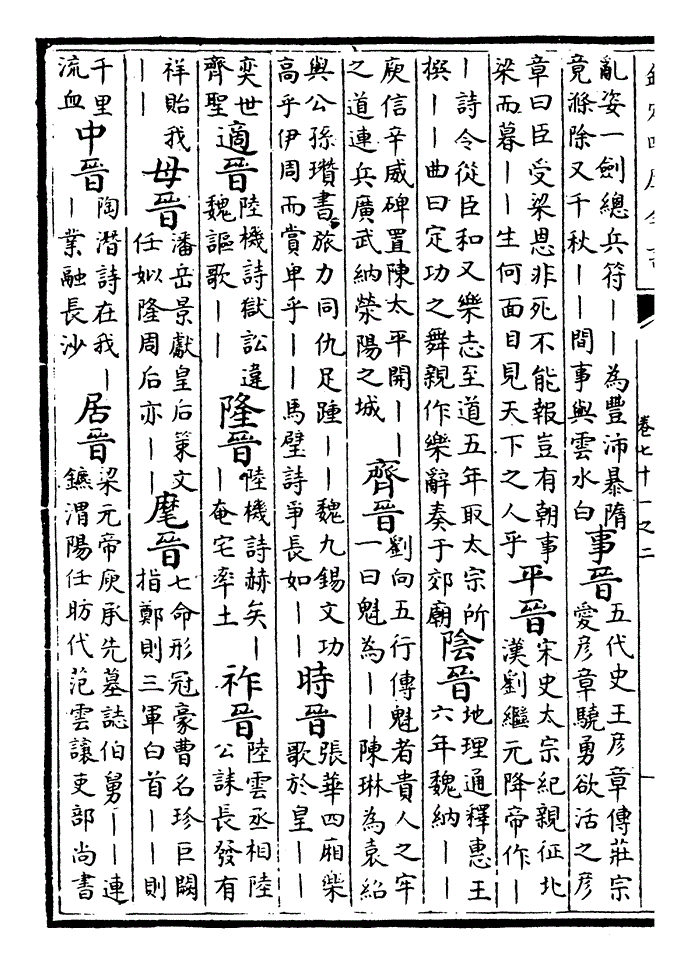 欽定四庫全書
卷七十一之二
亂姿一劍總兵符——為豐沛暴隋
竟滌除又千秋——間事與雲水白
事晉
五代史王彥章傳莊宗
愛彥章驍勇欲活之彥
章曰臣受梁恩非死不能報豈有朝事
梁而暮——生何面目見天下之人乎
平晉
宋史太宗紀親征北
漢劉繼元降帝作—
—詩令從臣和又樂志至道五年取太宗所
撰——曲曰定功之舞親作樂辭奏于郊廟
陰晉
地理通釋惠王
六年魏納——
庾信辛威碑置陳太平開——
之道連兵廣武納滎陽之城
齊晉
劉向五行傳魁者貴人之牢
一曰魁為——陳琳為袁紹
與公孫瓚書旅力同仇足踵——魏九錫文功
高乎伊周而賞卑乎——馬璧詩爭長如——
時晉
張華四廂樂
歌於皇——
奕世
齊聖
適晉
陸機詩獄訟違
魏謳歌——
隆晉
陸機詩赫矣—
—奄宅率土
祚晉
陸雲丞相陸
公誄長發有
祥貽我
——
母晉
潘岳景獻皇后策文
任姒隆周后亦——
麾晉
七命形冠豪曹名珍巨闕
指鄭則三軍白首——則
千里
流血
中晉
陶潛詩在我—
—業融長沙
居晉
梁元帝庾承先墓誌伯舅——連
鑣渭陽任昉代范雲讓吏部尚書